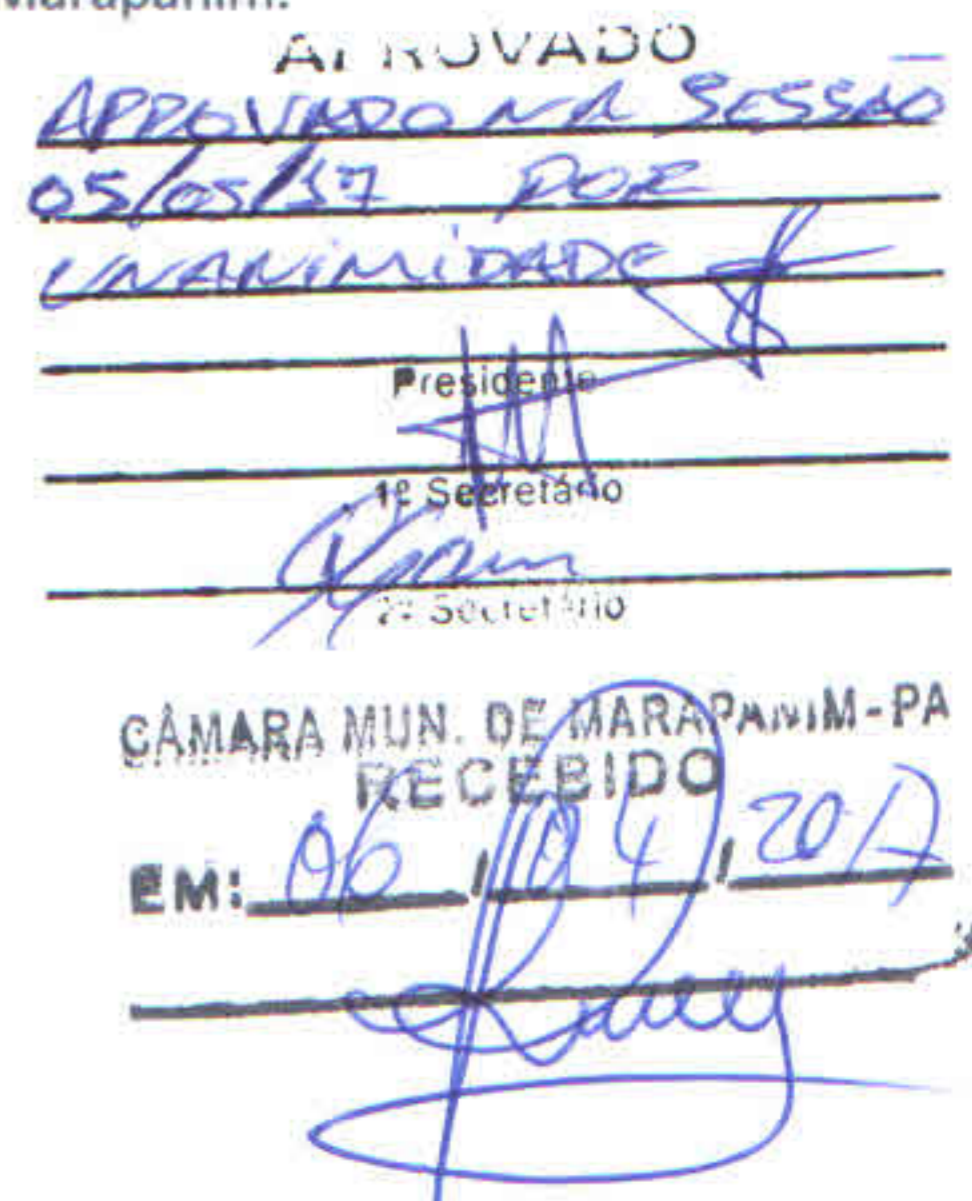 Marapanim.
APROVADO
APROVADO NA SESSÃO
05/05/17 POR
UNANIMIDADE
Presidente
1º Secretário
2º Secretário
CÂMARA MUN. DE MARAPANIM-PA
RECEBIDO
EM: 06/04/2017